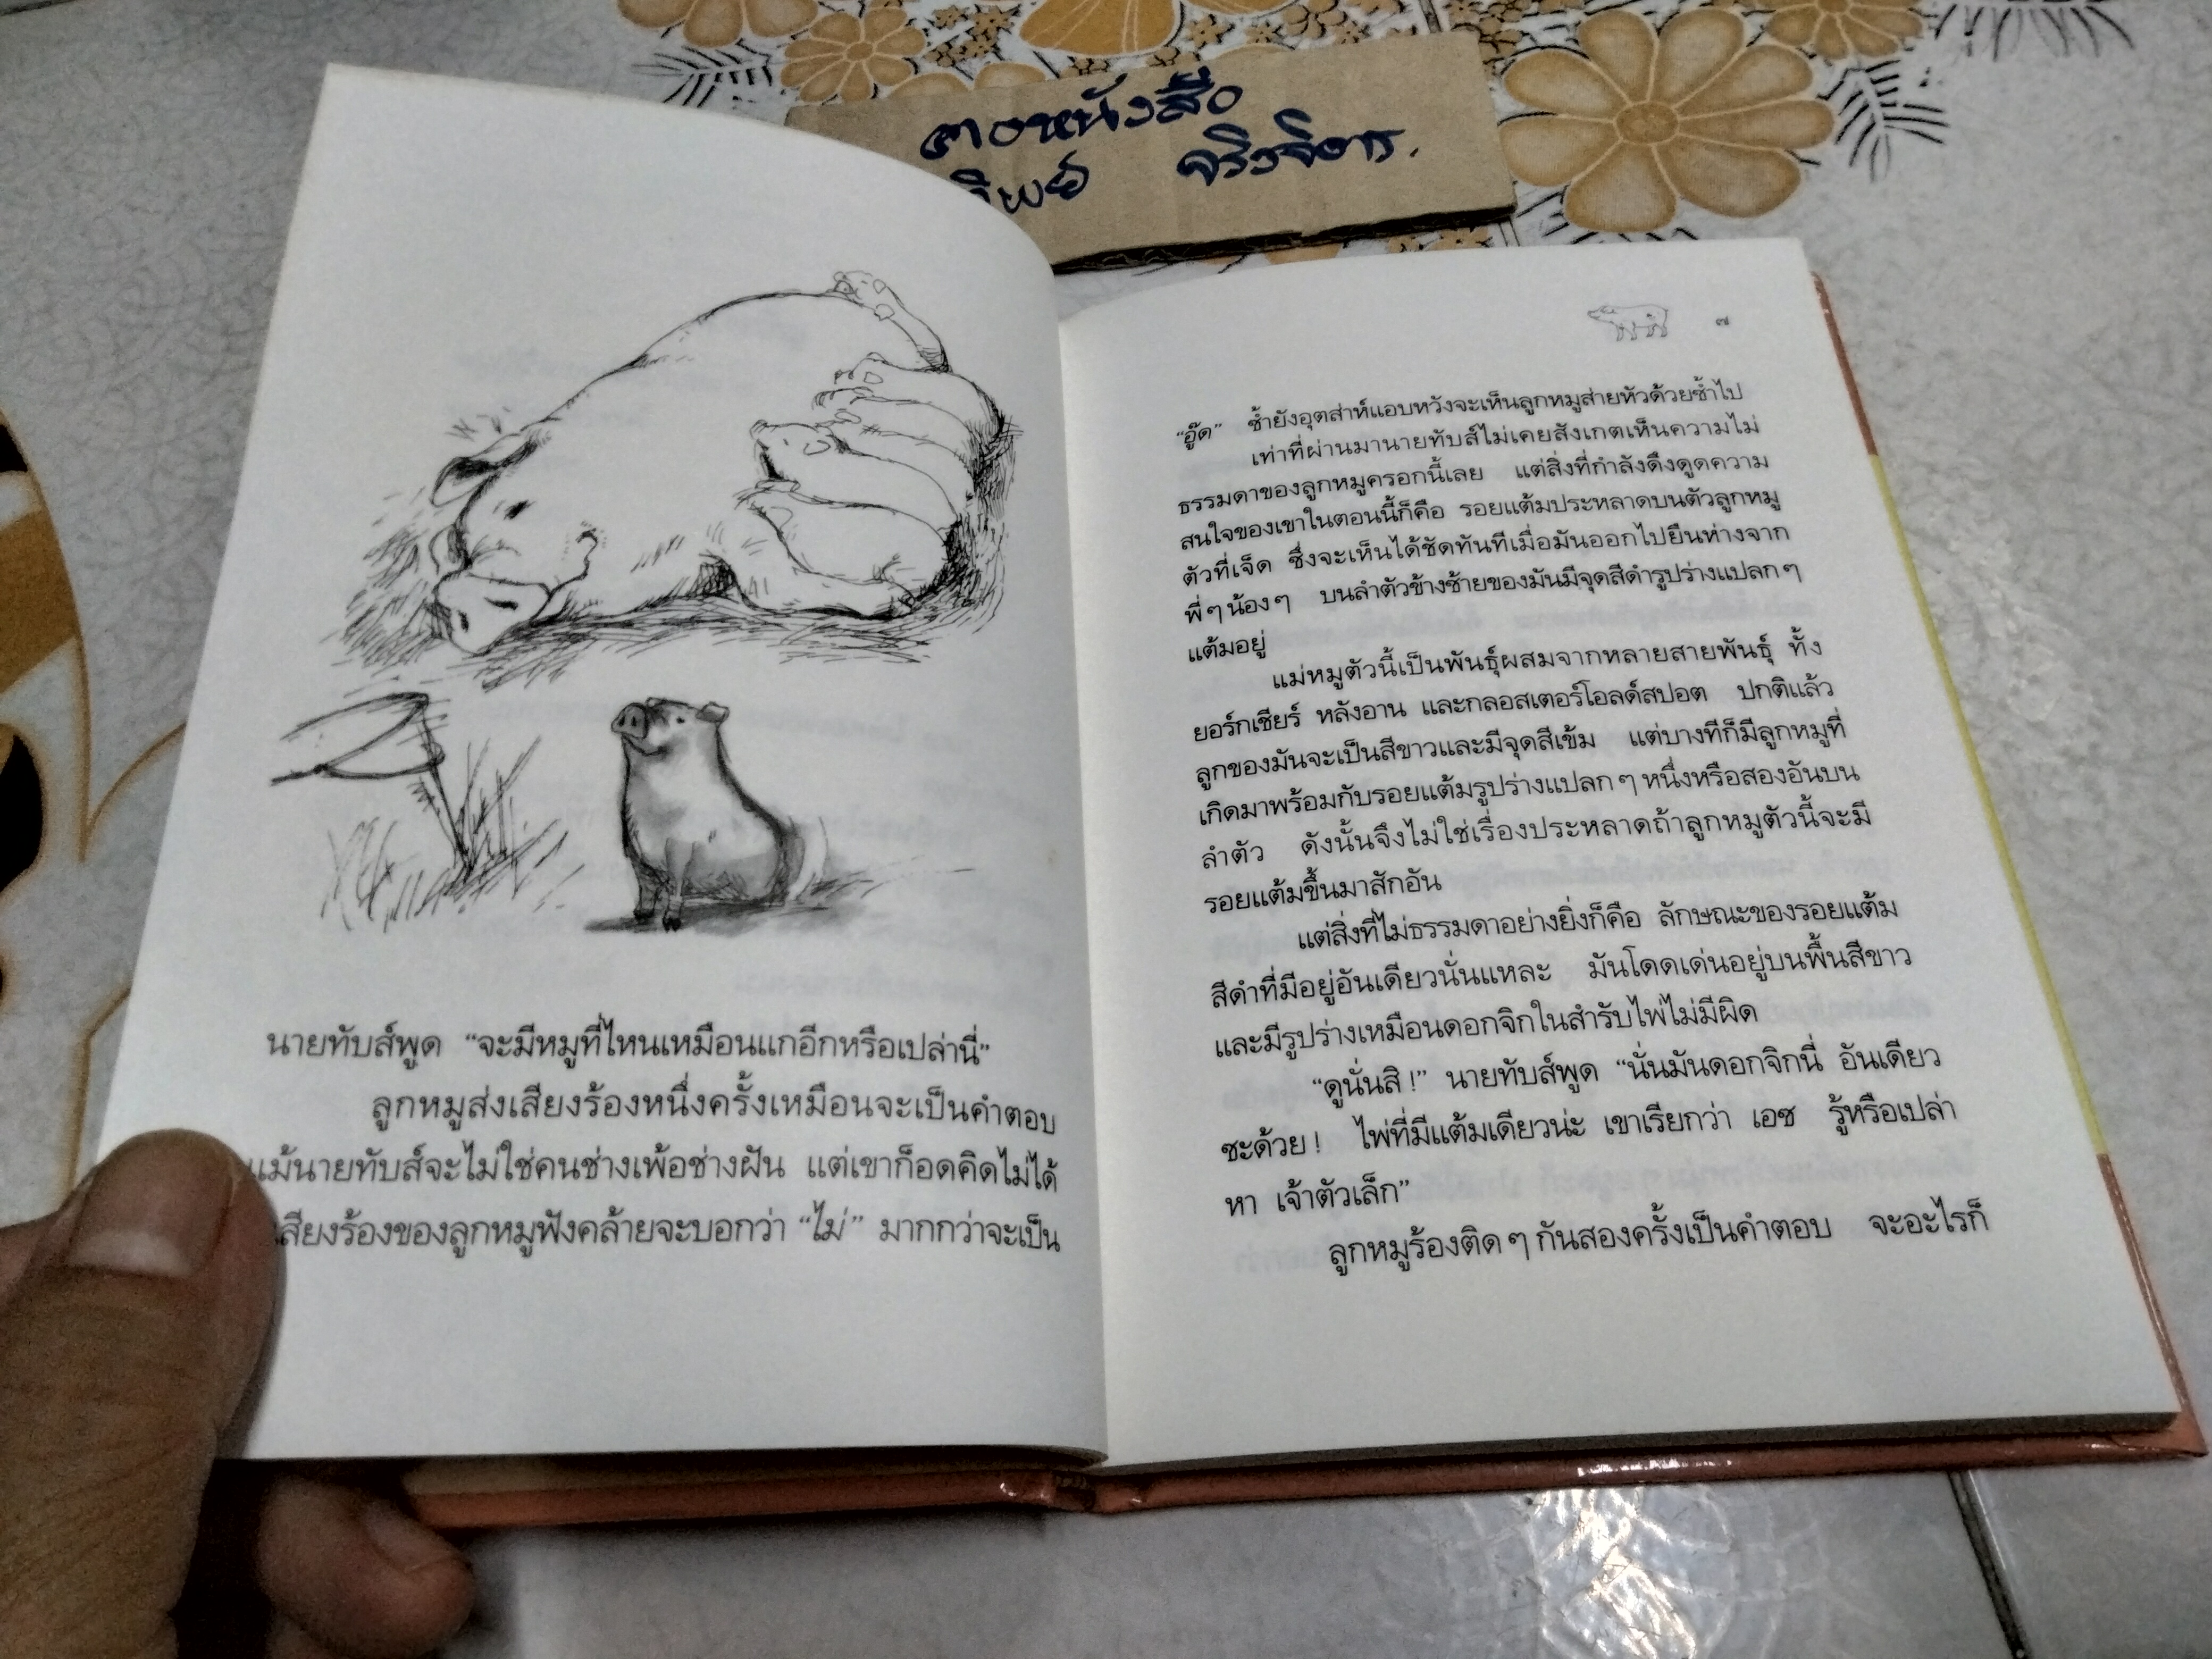 ฅอหนังสือ
ทิพย์ จริงจิตร.
นายทับส์พูด “จะมีหมูที่ไหนเหมือนแกอีกหรือเปล่านี่”
ลูกหมูส่งเสียงร้องหนึ่งครั้งเหมือนจะเป็นคำตอบ
แม้นายทับส์จะไม่ใช่คนช่างเพ้อช่างฝัน แต่เขาก็อดคิดไม่ได้
เสียงร้องของลูกหมูฟังคล้ายจะบอกว่า “ไม่” มากกว่าจะเป็น
๗
“อู๊ด” ซ้ำยังอุตส่าห์แอบหวังจะเห็นลูกหมูส่ายหัวด้วยซ้ำไป
เท่าที่ผ่านมานายทับส์ไม่เคยสังเกตเห็นความไม่
ธรรมดาของลูกหมูครอกนี้เลย แต่สิ่งที่กำลังดึงดูดความ
สนใจของเขาในตอนนี้ก็คือ รอยแต้มประหลาดบนตัวลูกหมู
ตัวที่เจ็ด ซึ่งจะเห็นได้ชัดทันทีเมื่อมันออกไปยืนห่างจาก
พี่ๆ น้องๆ บนลำตัวข้างซ้ายของมันมีจุดสีดำรูปร่างแปลกๆ
แต้มอยู่
แม่หมูตัวนี้เป็นพันธุ์ผสมจากหลายสายพันธุ์ ทั้ง
ยอร์กเชียร์ หลังอาน และกลอสเตอร์โอลด์สปอต ปกติแล้ว
ลูกของมันจะเป็นสีขาวและมีจุดสีเข้ม แต่บางทีก็มีลูกหมูที่
เกิดมาพร้อมกับรอยแต้มรูปร่างแปลกๆ หนึ่งหรือสองอันบน
ลำตัว ดังนั้นจึงไม่ใช่เรื่องประหลาดถ้าลูกหมูตัวนี้จะมี
รอยแต้มขึ้นมาสักอัน
แต่สิ่งที่ไม่ธรรมดาอย่างยิ่งก็คือ ลักษณะของรอยแต้ม
สีดำที่มีอยู่อันเดียวนั่นแหละ มันโดดเด่นอยู่บนพื้นสีขาว
และมีรูปร่างเหมือนดอกจิกในสำรับไพ่ไม่มีผิด
“ดูนั่นสิ !” นายทับส์พูด “นั่นมันดอกจิกนี่ อันเดียว
ซะด้วย ! ไพ่ที่มีแต้มเดียวน่ะ เขาเรียกว่า เอซ รู้หรือเปล่า
หา เจ้าตัวเล็ก”
ลูกหมูร้องติดๆ กันสองครั้งเป็นคำตอบ จะอะไรก็